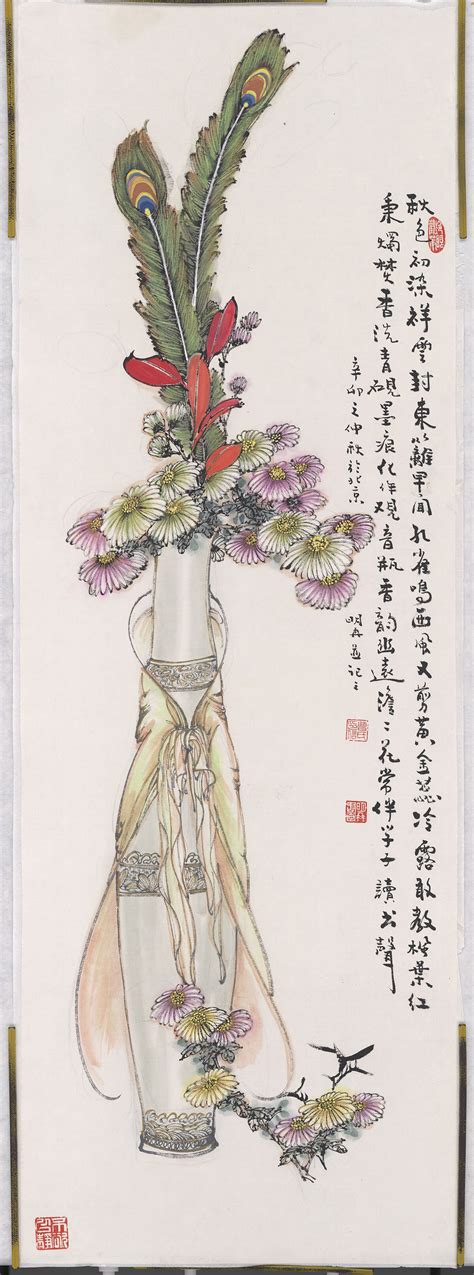 秋色初染祥雲封東籬早闻孔雀鳴西風又剪黃金蕊冷露敢教枫葉红
秉燭焚香洗青硯墨痕化作观音瓶香韵幽遠澹〻花常伴学子讀书聲
辛卯之仲秋於北京
明冉並记之